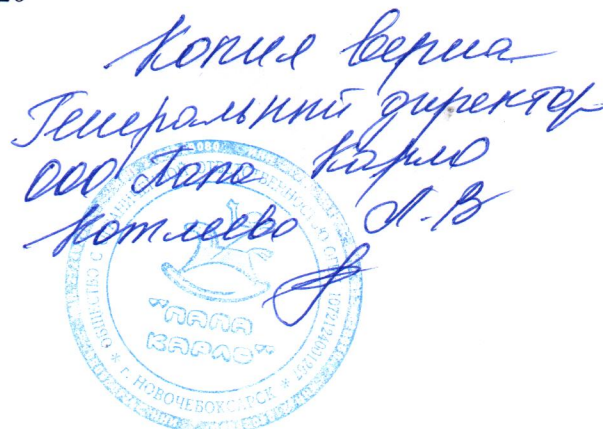 Копия верна
Генеральный директор
ООО Папа Карло
Котлеева Л.В
"ПАПА
КАРЛО"
г. НОВОЧЕБОКСАРСК